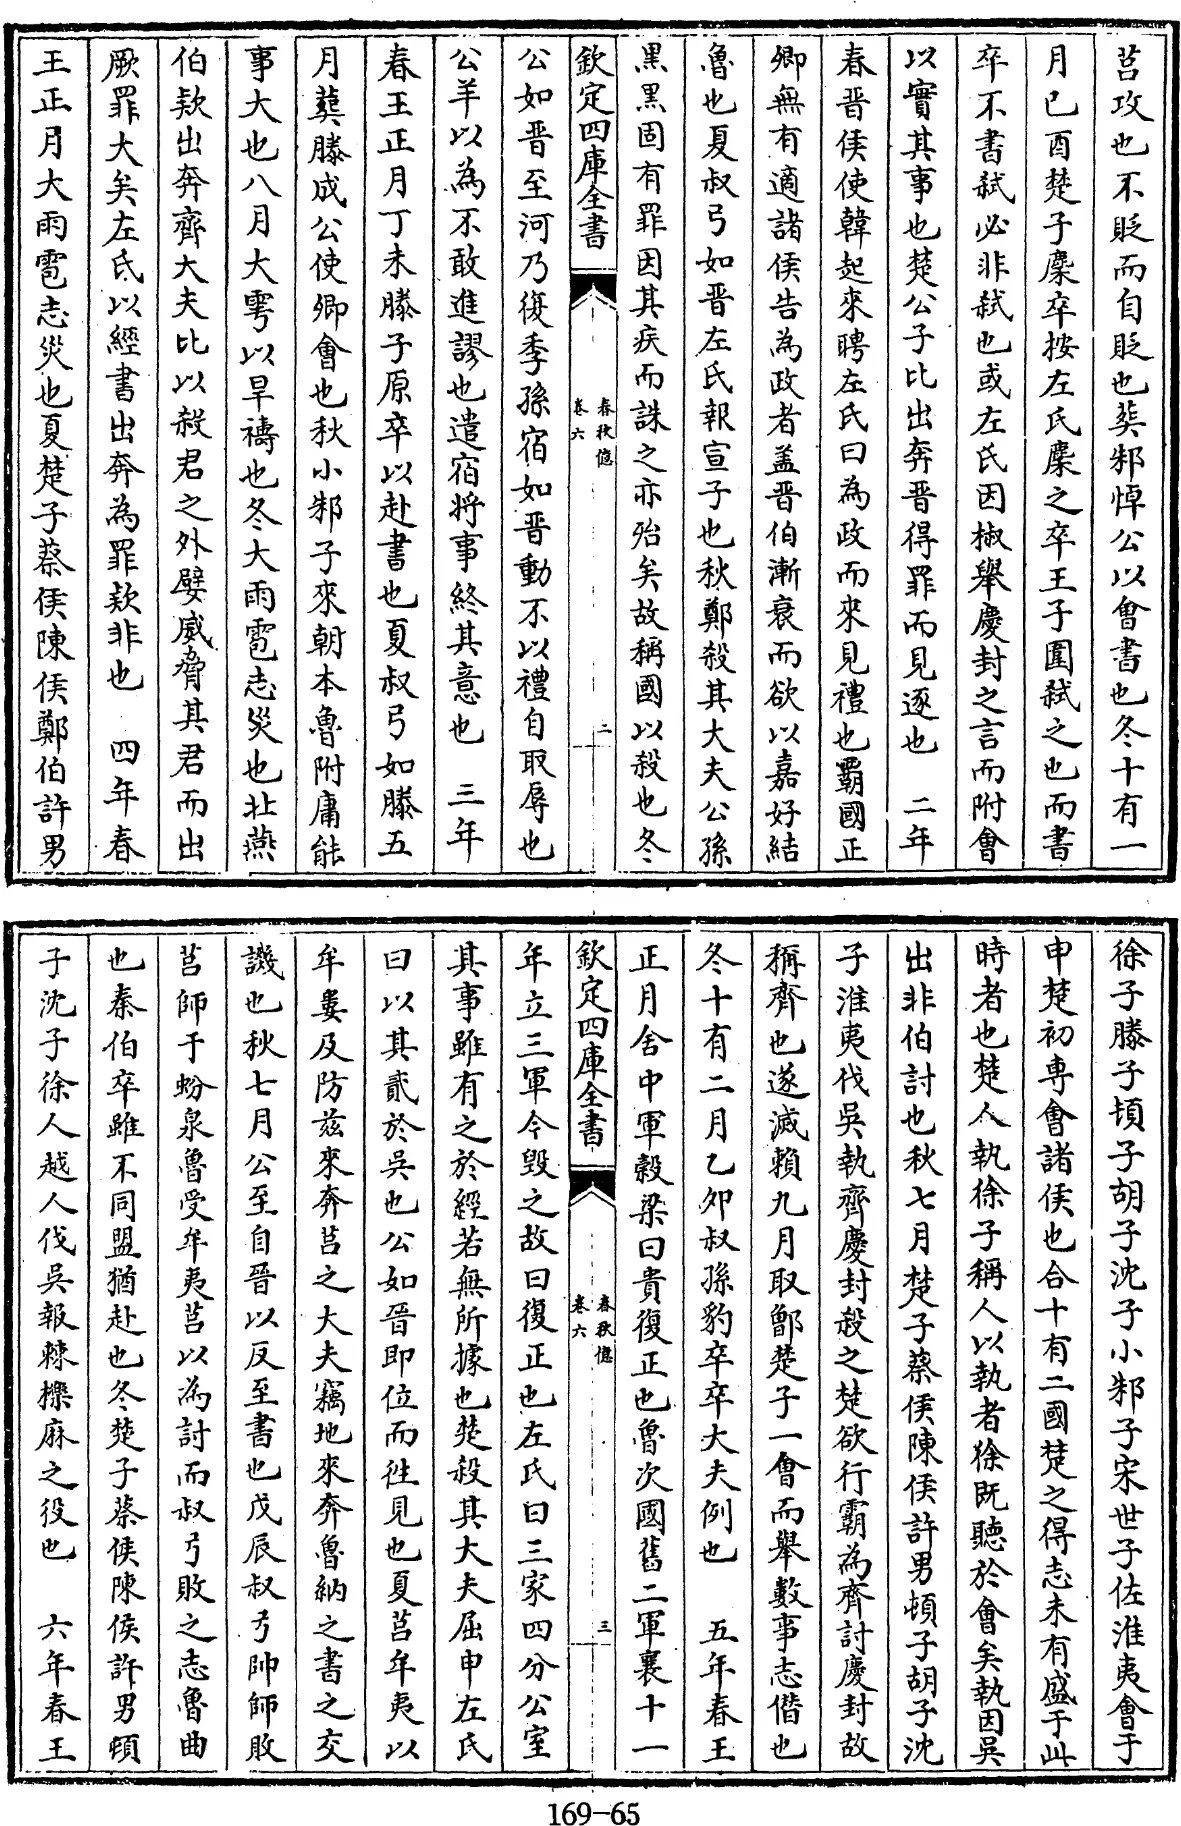 莒攻也不貶而自貶也葬邾悼公以會書也冬十有一
月己酉楚子麇卒按左氏麇之卒王子圍弑之也而書
卒不書弑必非弑也或左氏因椒舉慶封之言而附會
以實其事也楚公子比出奔晋得罪而見逐也 二年
春晋侯使韓起來聘左氏曰為政而來見禮也霸國正
卿無有適諸侯告為政者盖晋伯漸衰而欲以嘉好結
魯也夏叔弓如晋左氏報宣子也秋鄭殺其大夫公孫
黑黑固有罪因其疾而誅之亦殆矣故稱國以殺也冬
欽定四庫全書
春秋億
卷六
二
公如晋至河乃復季孫宿如晋動不以禮自取辱也
公羊以為不敢進謬也遣宿將事終其意也 三年
春王正月丁未滕子原卒以赴書也夏叔弓如滕五
月葬滕成公使卿會也秋小邾子來朝本魯附庸能
事大也八月大雩以旱禱也冬大雨雹志災也北燕
伯欵出奔齊大夫比以殺君之外嬖威脅其君而出
厥罪大矣左氏以經書出奔為罪欵非也 四年春
王正月大雨雹志災也夏楚子蔡侯陳侯鄭伯許男
徐子滕子頓子胡子沈子小邾子宋世子佐淮夷會于
申楚初專會諸侯也合十有二國楚之得志未有盛于此
時者也楚人執徐子稱人以執者徐既聽於會矣執因吳
出非伯討也秋七月楚子蔡侯陳侯許男頓子胡子沈
子淮夷伐吳執齊慶封殺之楚欲行霸為齊討慶封故
稱齊也遂滅賴九月取鄫楚子一會而舉數事志僭也
冬十有二月乙夘叔孫豹卒卒大夫例也 五年春王
正月舍中軍穀梁曰貴復正也魯次國舊二軍襄十一
欽定四庫全書
春秋億
卷六
三
年立三軍今毀之故曰復正也左氏曰三家四分公室
其事雖有之於經若無所據也楚殺其大夫屈申左氏
曰以其貳於吳也公如晉即位而徃見也夏莒牟夷以
牟婁及防茲來奔莒之大夫竊地來奔魯納之書之交
譏也秋七月公至自晉以反至書也戊辰叔弓帥師敗
莒師于蚡泉魯受牟夷莒以為討而叔弓敗之志魯曲
也秦伯卒雖不同盟猶赴也冬楚子蔡侯陳侯許男頓
子沈子徐人越人伐吳報棘櫟麻之役也 六年春王
169-65